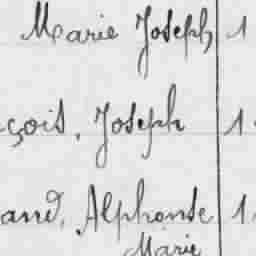 Marie Joseph 1
çois, Joseph 1
and, Alphonse 1
Marie